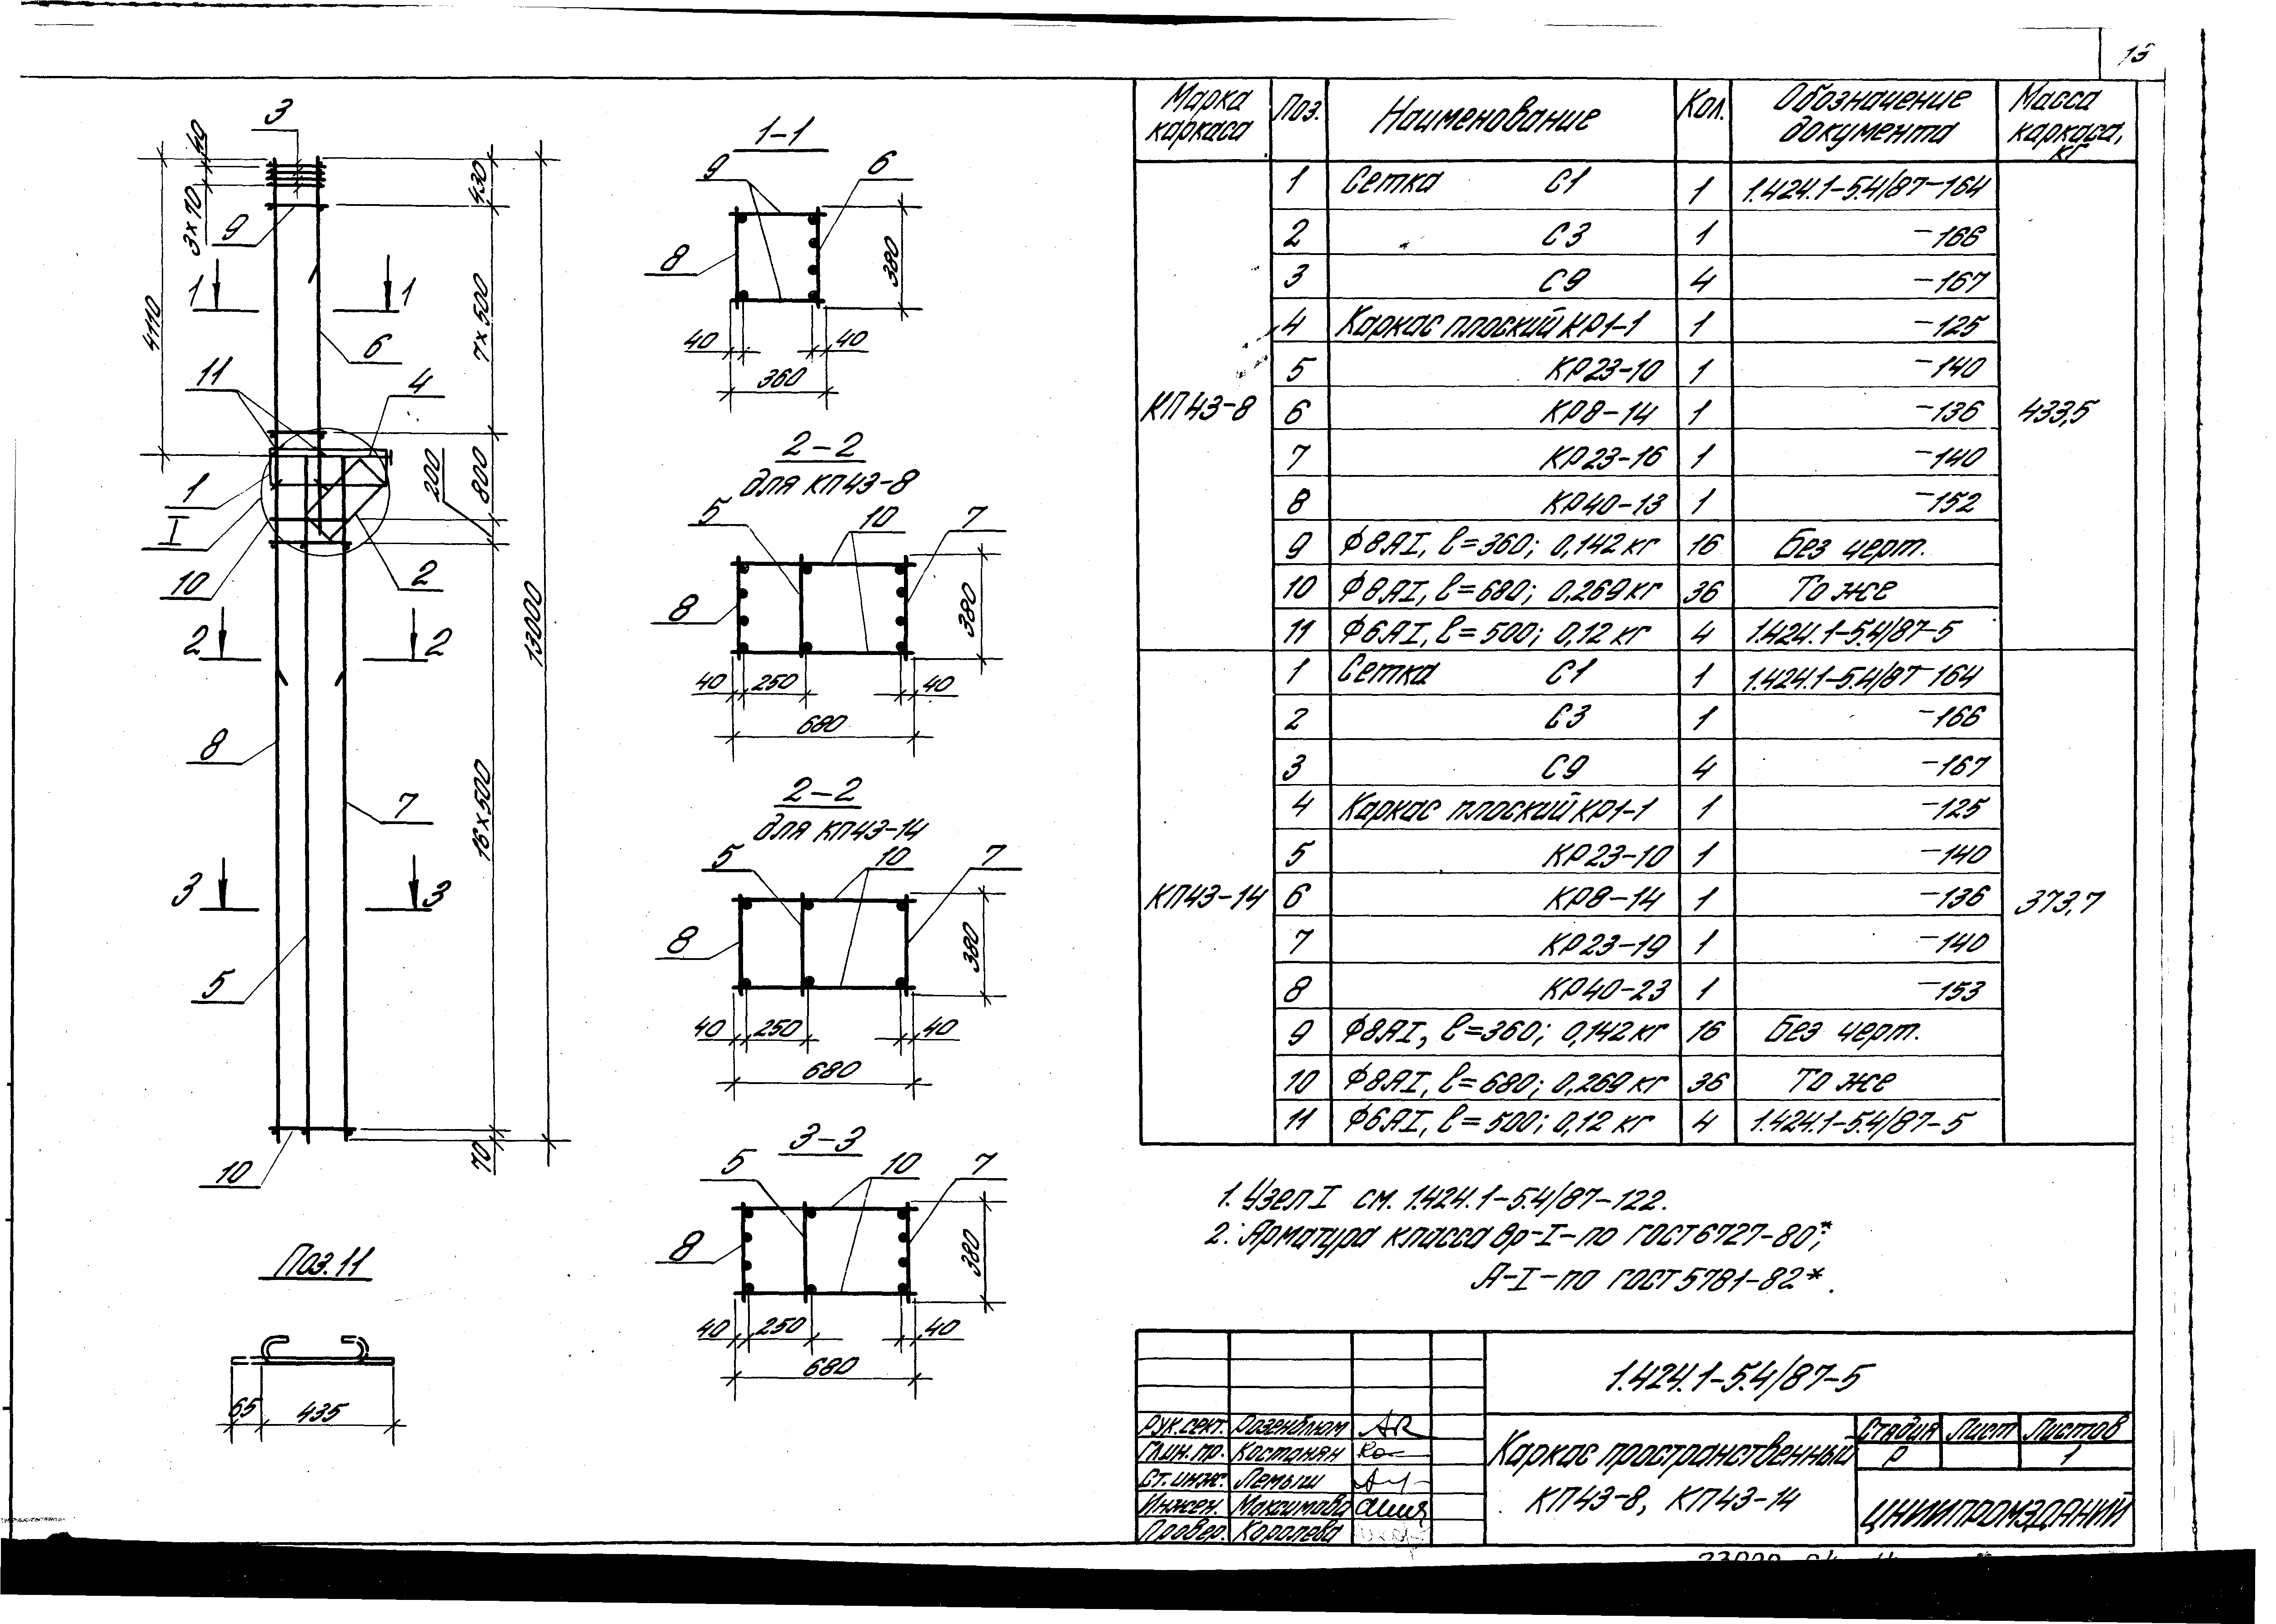 13
3
40
3×10
430
9
1 1
4110
7×500
6
11
4
1
I
200
800
10
2
2 2
13000
8
7
16×500
3 3
5
10
70
Поз. 11
65 435
1-1
9 6
8
380
40 40
360
2-2
для КП43-8
5 10 7
8
380
40 250 40
680
2-2
для КП43-14
5 10 7
8
380
40 250 40
680
3-3
5 10 7
8
380
40 250 40
680
Марка каркаса Поз. Наименование Кол. Обозначение документа Масса каркаса, кг
КП43-8 433,5
1 Сетка С1 1 1.424.1-5.4/87-164
2 С3 1 -166
3 С9 4 -167
4 Каркас плоский КР1-1 1 -125
5 КР23-10 1 -140
6 КР8-14 1 -136
7 КР23-16 1 -140
8 КР40-13 1 -152
9 Ф8АI, ℓ=360; 0,142 кг 16 Без черт.
10 Ф8АI, ℓ=680; 0,269 кг 36 То же
11 Ф6АI, ℓ=500; 0,12 кг 4 1.424.1-5.4/87-5
КП43-14 373,7
1 Сетка С1 1 1.424.1-5.4/87-164
2 С3 1 -166
3 С9 4 -167
4 Каркас плоский КР1-1 1 -125
5 КР23-10 1 -140
6 КР8-14 1 -136
7 КР23-19 1 -140
8 КР40-23 1 -153
9 Ф8АI, ℓ=360; 0,142 кг 16 Без черт.
10 Ф8АI, ℓ=680; 0,269 кг 36 То же
11 Ф6АI, ℓ=500; 0,12 кг 4 1.424.1-5.4/87-5
1. Узел I см. 1.424.1-5.4/87-122.
2. Арматура класса Вр-I-по ГОСТ 6727-80*;
А-I-по ГОСТ 5781-82*.
1.424.1-5.4/87-5
Рук. сект. Розенблюм
Гл.ин.пр. Костанян
Ст. инж. Лемыш
Инжен. Максимова
Провер. Королева
Каркас пространственный
КП43-8, КП43-14
Стадия Лист Листов
Р 1
ЦНИИПРОМЗДАНИЙ